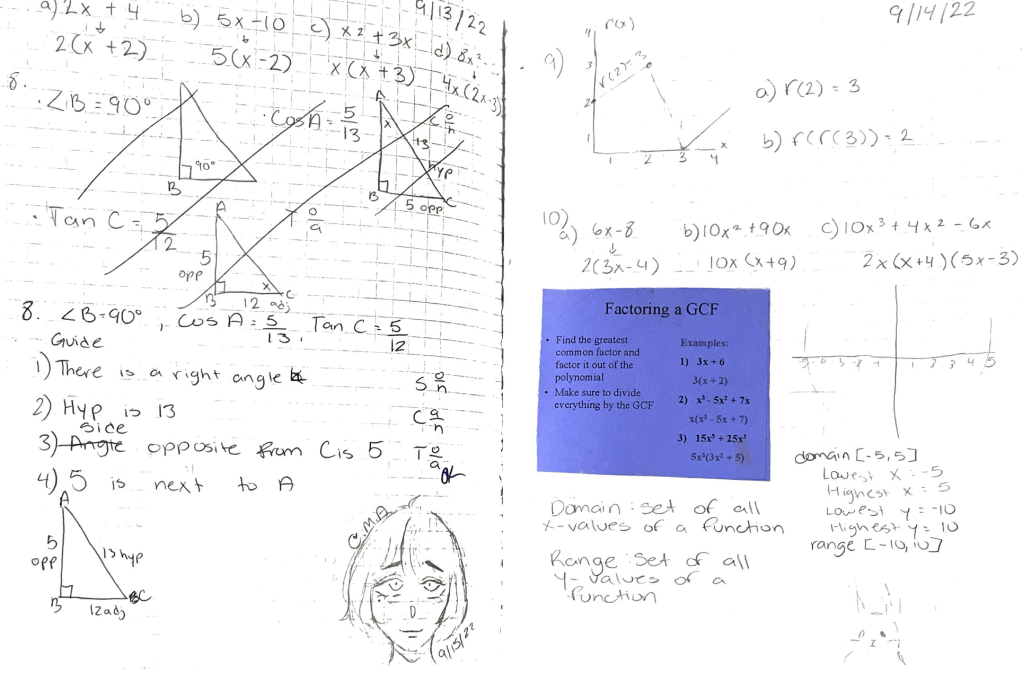 9/13/22
a) 2x + 4 b) 5x-10 c) x² + 3x d) 8x²
2(x+2) 5(x-2) x(x+3) 4x(2x-3)
8.
· ∠B = 90°
90°
B
· Cos A = 5/13
A
x
13
hyp
B
5 opp
C
C o/h
· Tan C = 5/12
A
5
opp
B
12 adj
x
C
T o/a
8. ∠B=90°, Cos A = 5/13, Tan C = 5/12
Guide
1) There is a right angle
S o/h
2) Hyp is 13
C a/h
side
3) Angle opposite from C is 5
T o/a
4) 5 is next to A
or
A
5
opp
13 hyp
B
12 adj
C
C.M.A
9/15/22
9/14/22
9)
r(x)
4
3
2
1
r(2)=3
1 2 3 4 x
a) r(2) = 3
b) r(r(3)) = 2
10)
a) 6x-8 b) 10x² + 90x c) 10x³ + 4x² - 6x
2(3x-4) 10x(x+9) 2x(x+4)(5x-3)
Factoring a GCF
• Find the greatest
common factor and
factor it out of the
polynomial
• Make sure to divide
everything by the GCF
Examples:
1) 3x + 6
3(x + 2)
2) x³ - 5x² + 7x
x(x² - 5x + 7)
3) 15x⁵ + 25x³
5x³(3x² + 5)
-5 -4 -3 -2 -1 1 2 3 4 5
domain [-5,5]
Lowest x : -5
Highest x = 5
Lowest y = -10
Highest y = 10
range [-10,10]
Domain : set of all
x-values of a function
Range : set of all
y-values of a
function